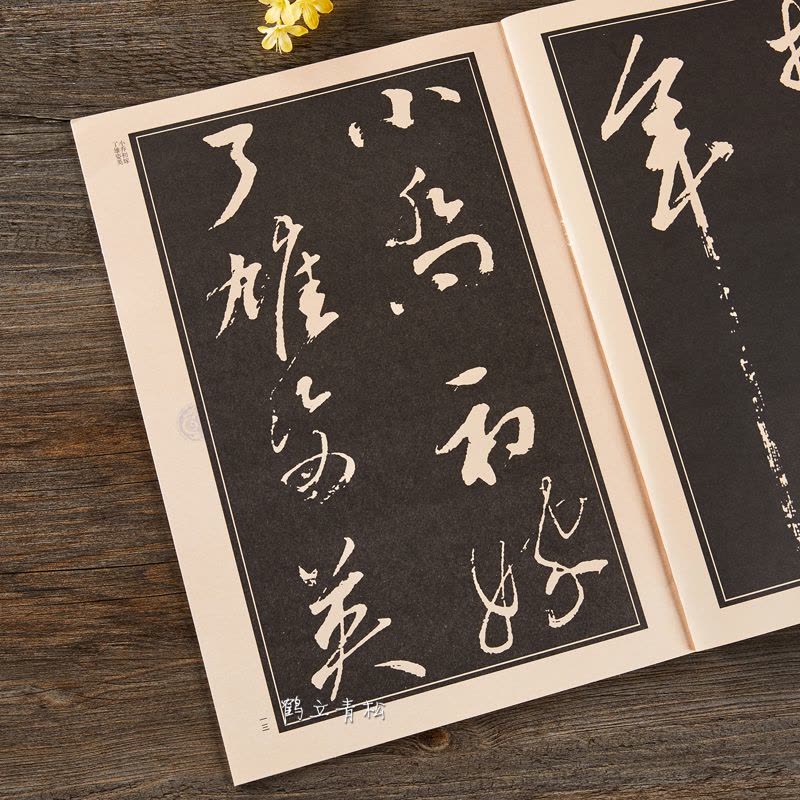 年
小乔初嫁
了雄姿英
小乔初嫁
了雄姿英
一三
鹤立青松